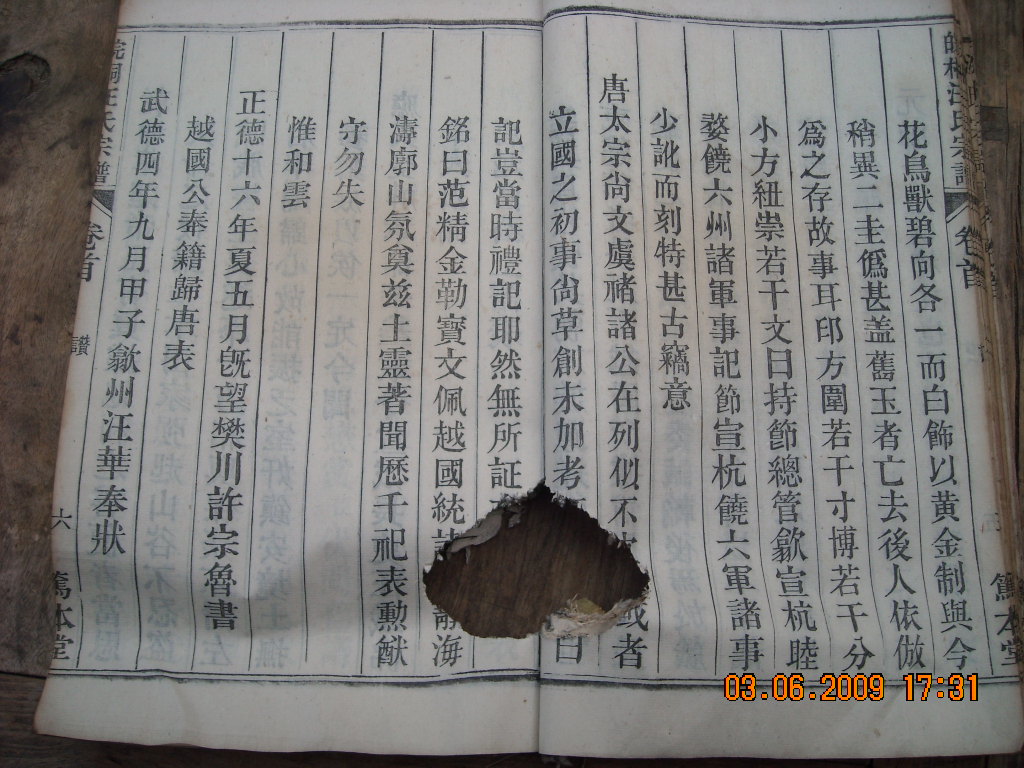 花鳥獸碧向各一而白飾以黃金制與今
稍異二主僞甚盖舊玉者亡去後人依倣
爲之存故事耳印方圍若干寸博若干分
小方紐崇若干文曰持節總管歙宣杭睦
婺饒六州諸軍事記節宣杭饒六軍諸事
少訛而刻特甚古竊意
唐太宗尙文虞禇諸公在列似不 或者
立國之初事尙草創未加考 日
記豈當時禮記耶然無所証
銘曰范精金勒寶文佩越國統 靜海
濤廓山氛奠兹土靈著聞歷千祀表勳猷
守勿失
惟和雲
正德十六年夏五月旣望樊川許宗魯書
越國公奉籍歸唐表
武德四年九月甲子歙州汪華奉狀
汪氏宗譜
卷首
讃
六
篤本堂
汪氏宗譜
卷首
篤本堂
03.06.2009 17:31